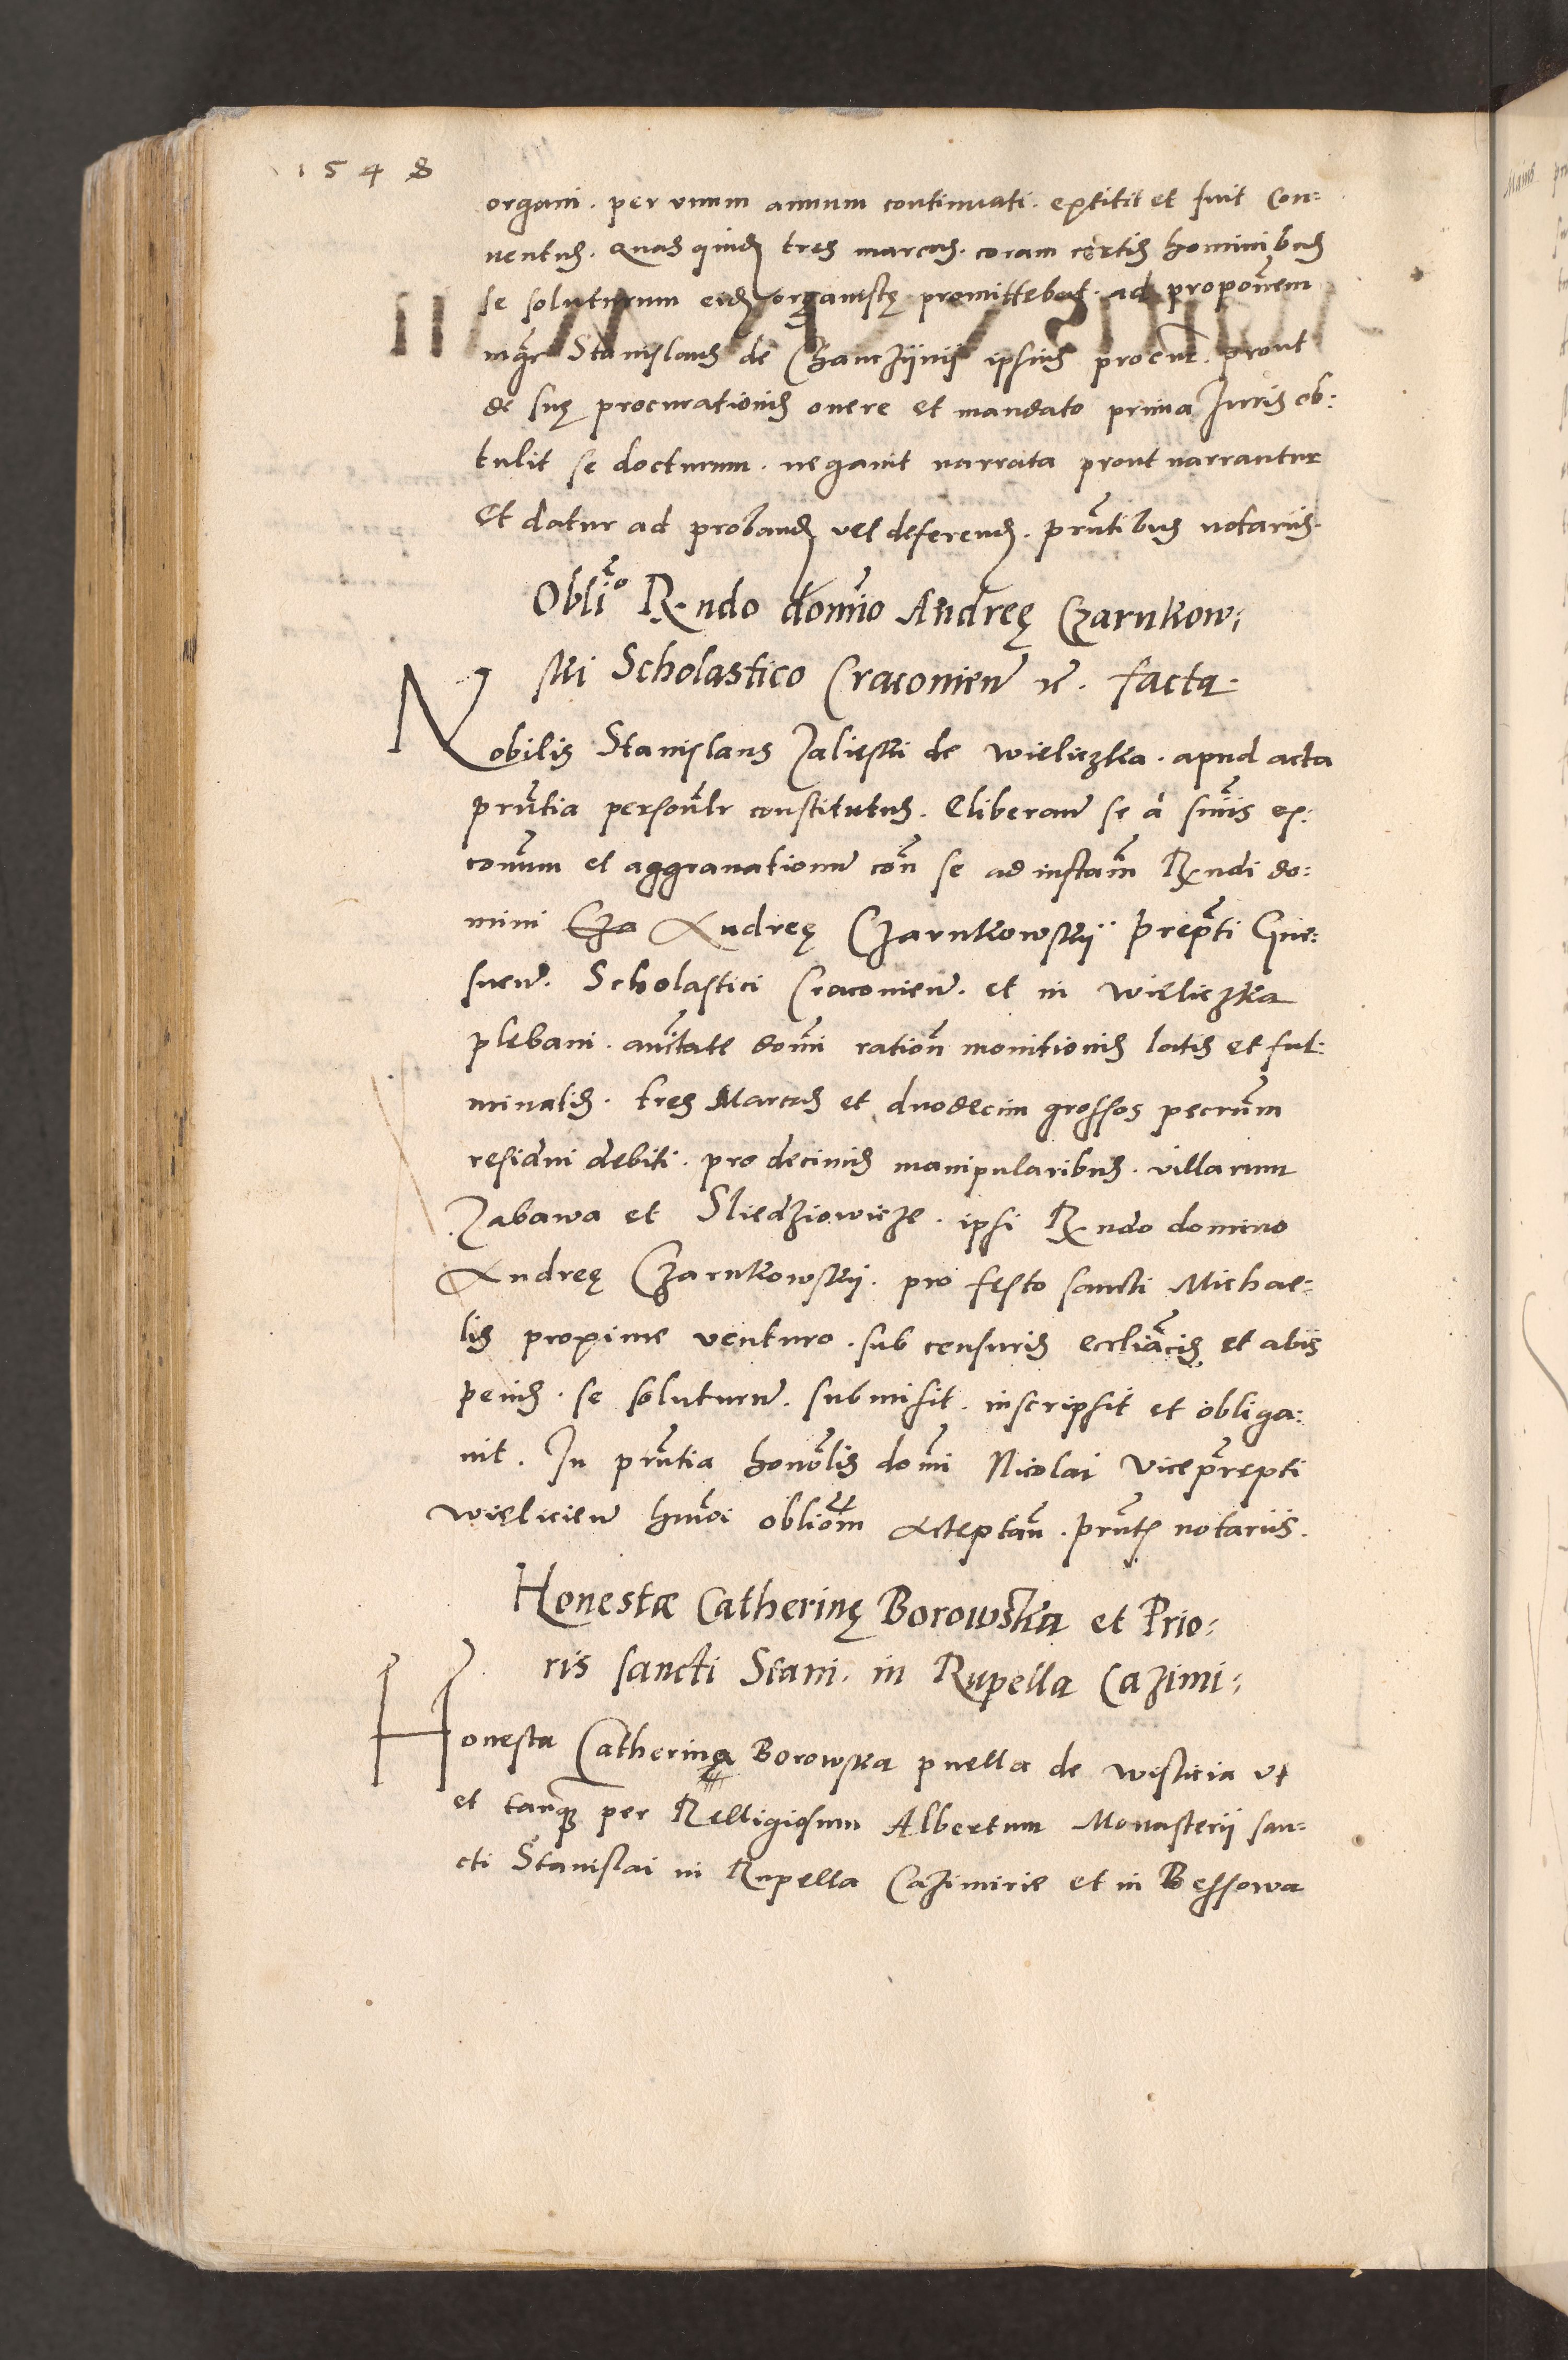 1548
organi. per unum annum continuati. extitit et fuit con:
uentus. Quas quidem tres marcas. coram certis hominibus
se soluturum eidem organistę promittebat. ad proponem
mgr Stanislaus de Chanczyny ipsius procur. prout
de suę procurationis onere et mandato prima Juris ob:
tulit se docturum. negauit narrata prout narrantur
et datur ad proband vel deferend. pntibus notariis.
Oblio R.ndo domino Andreę Czarnkow:
ski Scholastico Cracovien etc. facta.
Nobilis Stanislaus Zalieski de Wieliczka. apud acta
pntia personalr constitutus. Eliberan se a sniis ex:
conum et aggrauationum con se ad instam R.ndi do:
mini Cza Andreę Czarnkowskij prepti Gne:
snen. Scholastici Cracovien. et in Wieliczka
plebani. auctate domi ration monitionis latis et ful:
minatis. tres Marcas et duodecim grossos pecrum
residui debiti. pro decimis manipularibus. villarum
Zabawa et Sliedziowicze. ipsi R.ndo domino
Andreę Czarnkowskij. pro festo sancti Michae:
lis proxime venturo. sub censuris eccliacis et aliis
penis. se soluturum. submisit. inscripsit et obliga:
uit. In pntia honolis domi Nicolai Viceprepti
Wielicien hmoi obliom acceptan. pntibus notariis.
Honestæ Catherinę Borowska et Prio:
ris sancti Stani. in Rupella Cazimi:
Honesta Catherina Borowska puella de Wislicia ut
et tanq per Relligiosum Albertum Monasterij san:
cti Stanislai in Rupella Cazimirie et in Bessowa